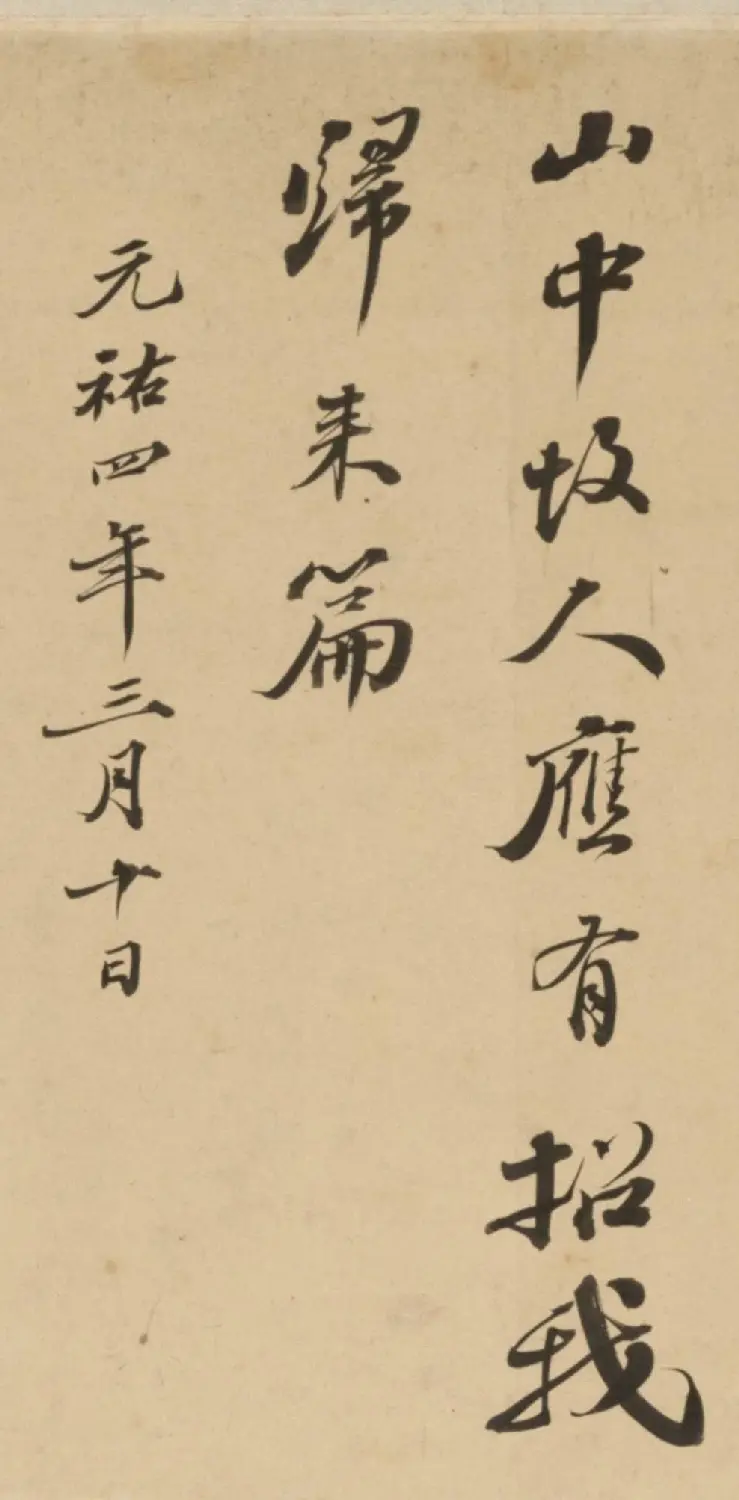 山中故人應有招我
歸来篇
元祐四年三月十日